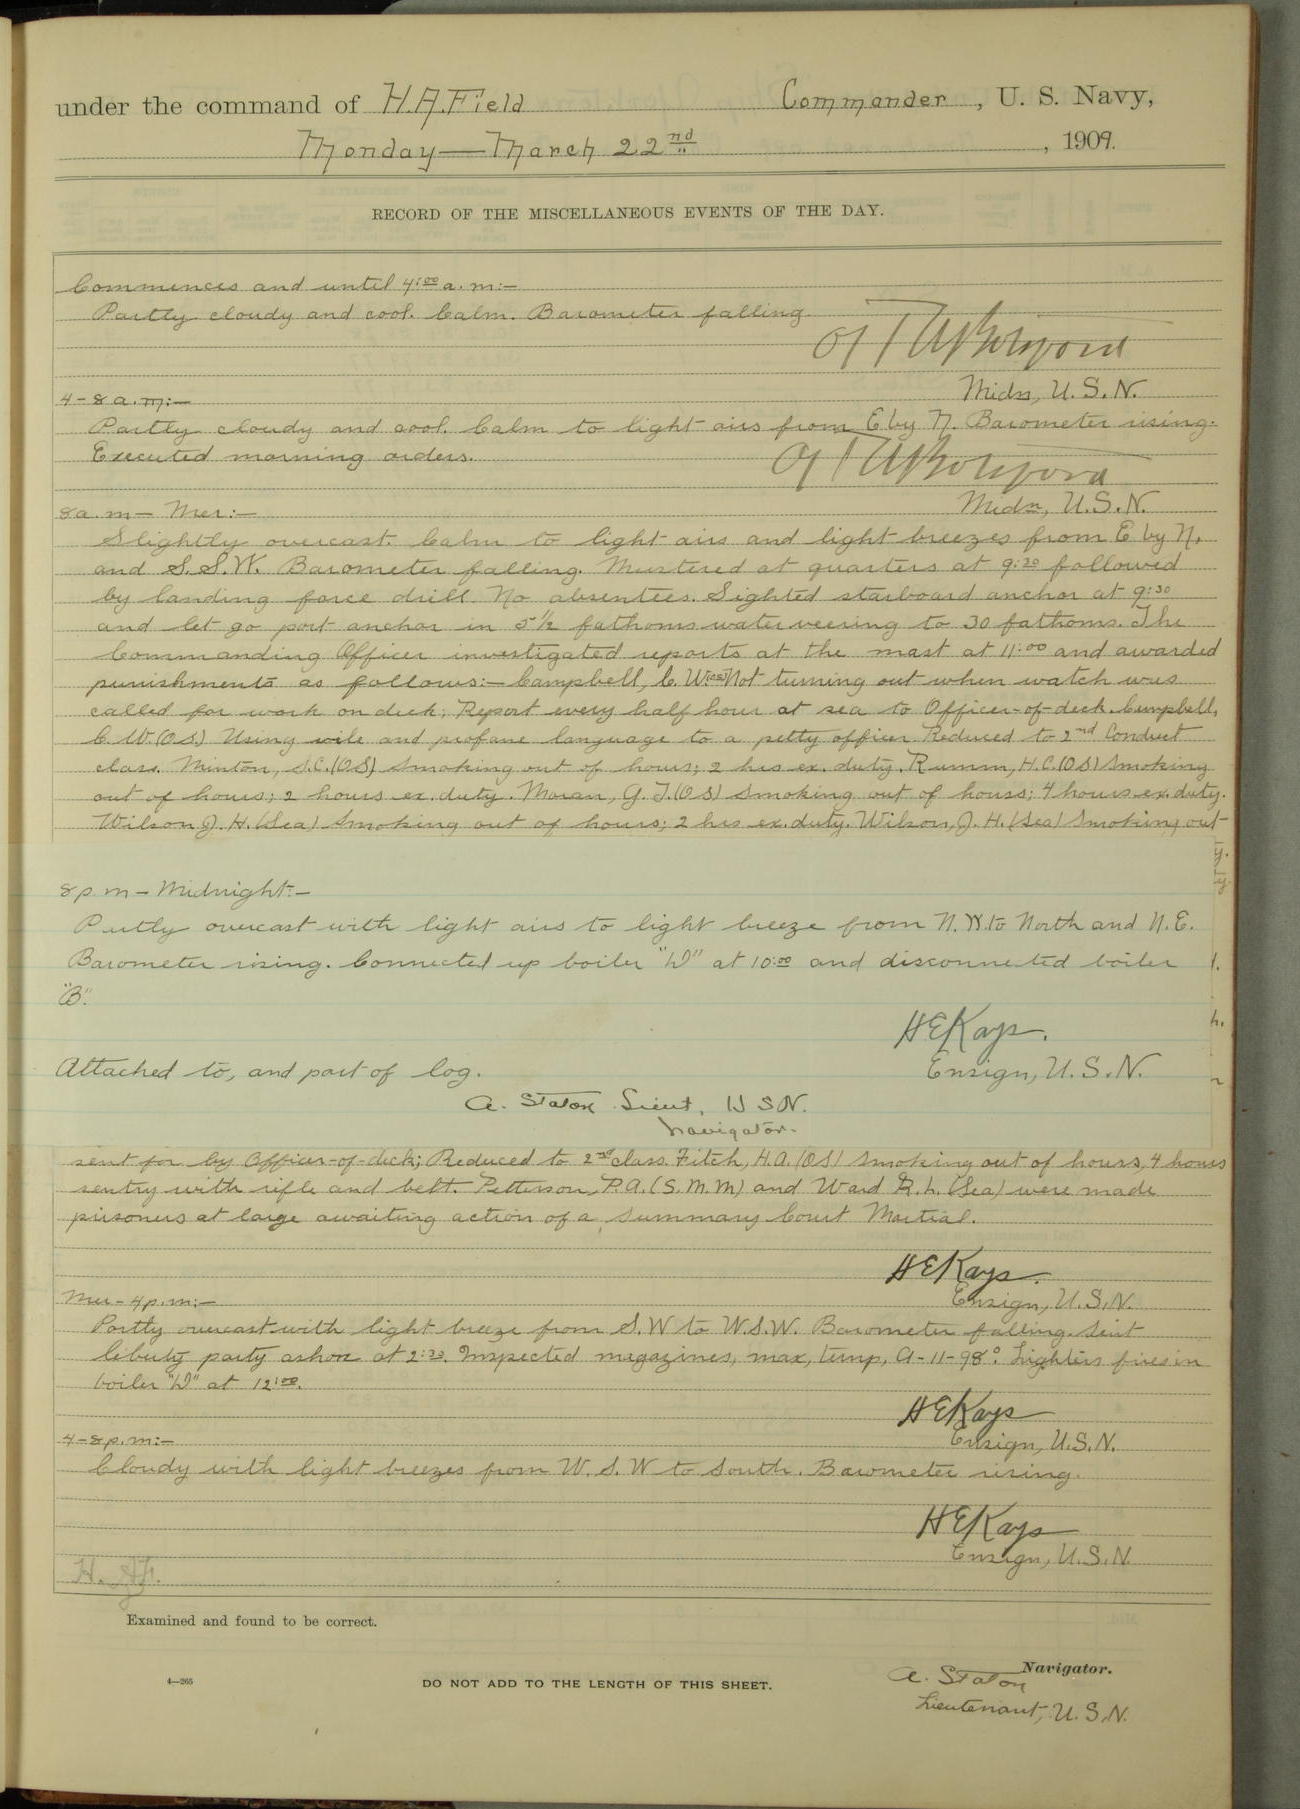 under the command of H.A.Field Commander, U. S. Navy,
Monday — March 22nd, 1909.
RECORD OF THE MISCELLANEOUS EVENTS OF THE DAY.
Commences and until 4:00 a.m:—
Partly cloudy and cool. Calm. Barometer falling.
Midn, U.S.N.
4-8 a.m:—
Partly cloudy and cool. Calm to light airs from E by N. Barometer rising.
Executed morning orders.
Midn, U.S.N.
8a.m— Mer:—
Slightly overcast. Calm to light airs and light breezes from E by N.
and S.S.W. Barometer falling. Mustered at quarters at 9:20 followed
by landing force drill. No absentees. Sighted starboard anchor at 9:30
and let go port anchor in 5 1/2 fathoms water veering to 30 fathoms. The
Commanding Officer investigated reports at the mast at 11:00 and awarded
punishments as follows:— Campbell, C. W.(OS) Not turning out when watch was
called for work on deck; Report every half hour at sea to Officer-of-deck. Campbell,
C. W.(OS) Using vile and profane language to a petty officer Reduced to 2nd Conduct
class. Minton, S.C.(OS) Smoking out of hours; 2 hrs ex. duty. Rumm, H.C.(OS) Smoking
out of hours; 2 hours ex. duty. Moran, G. J.(OS) Smoking out of hours; 4 hours ex. duty.
Wilson J. H.(Sea) Smoking out of hours; 2 hrs ex. duty. Wilson, J. H.(Sea) Smoking out
8 p m — Midnight:—
Partly overcast with light airs to light breeze from N.W. to North and N.E.
Barometer rising. Connected up boiler "D" at 10:00 and disconnected boiler
"B".
H E Kays.
Ensign, U.S.N.
Attached to, and part of log.
A. Staton Lieut, U S N.
Navigator.
sent for by Officer-of-deck; Reduced to 2nd class. Fitch, H.A.(OS) Smoking out of hours, 4 hours
sentry with rifle and belt. Petterson, P.A.(S.M.M) and Ward R. L.(Sea) were made
prisoners at large awaiting action of a Summary Court Martial.
H E Kays.
Ensign, U.S.N.
Mer- 4p.m:—
Partly overcast with light breeze from S.W to W.S.W. Barometer falling. Sent
liberty party ashore at 2:30. Inspected magazines, max, temp, A-11-98°. Lighters fires in
boiler "D" at 12:00.
H E Kays
Ensign, U.S.N.
4-8p.m:—
Cloudy with light breezes from W.S.W to South. Barometer rising.
H E Kays
Ensign, U.S.N.
H. A.F.
Examined and found to be correct.
A. Staton Navigator.
Lieutenant, U.S.N.
4—265
DO NOT ADD TO THE LENGTH OF THIS SHEET.